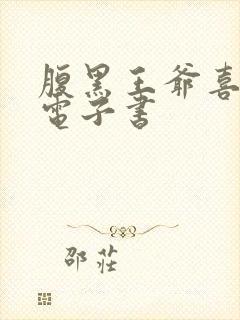 腹黑王爺喜
電子書
邵莊